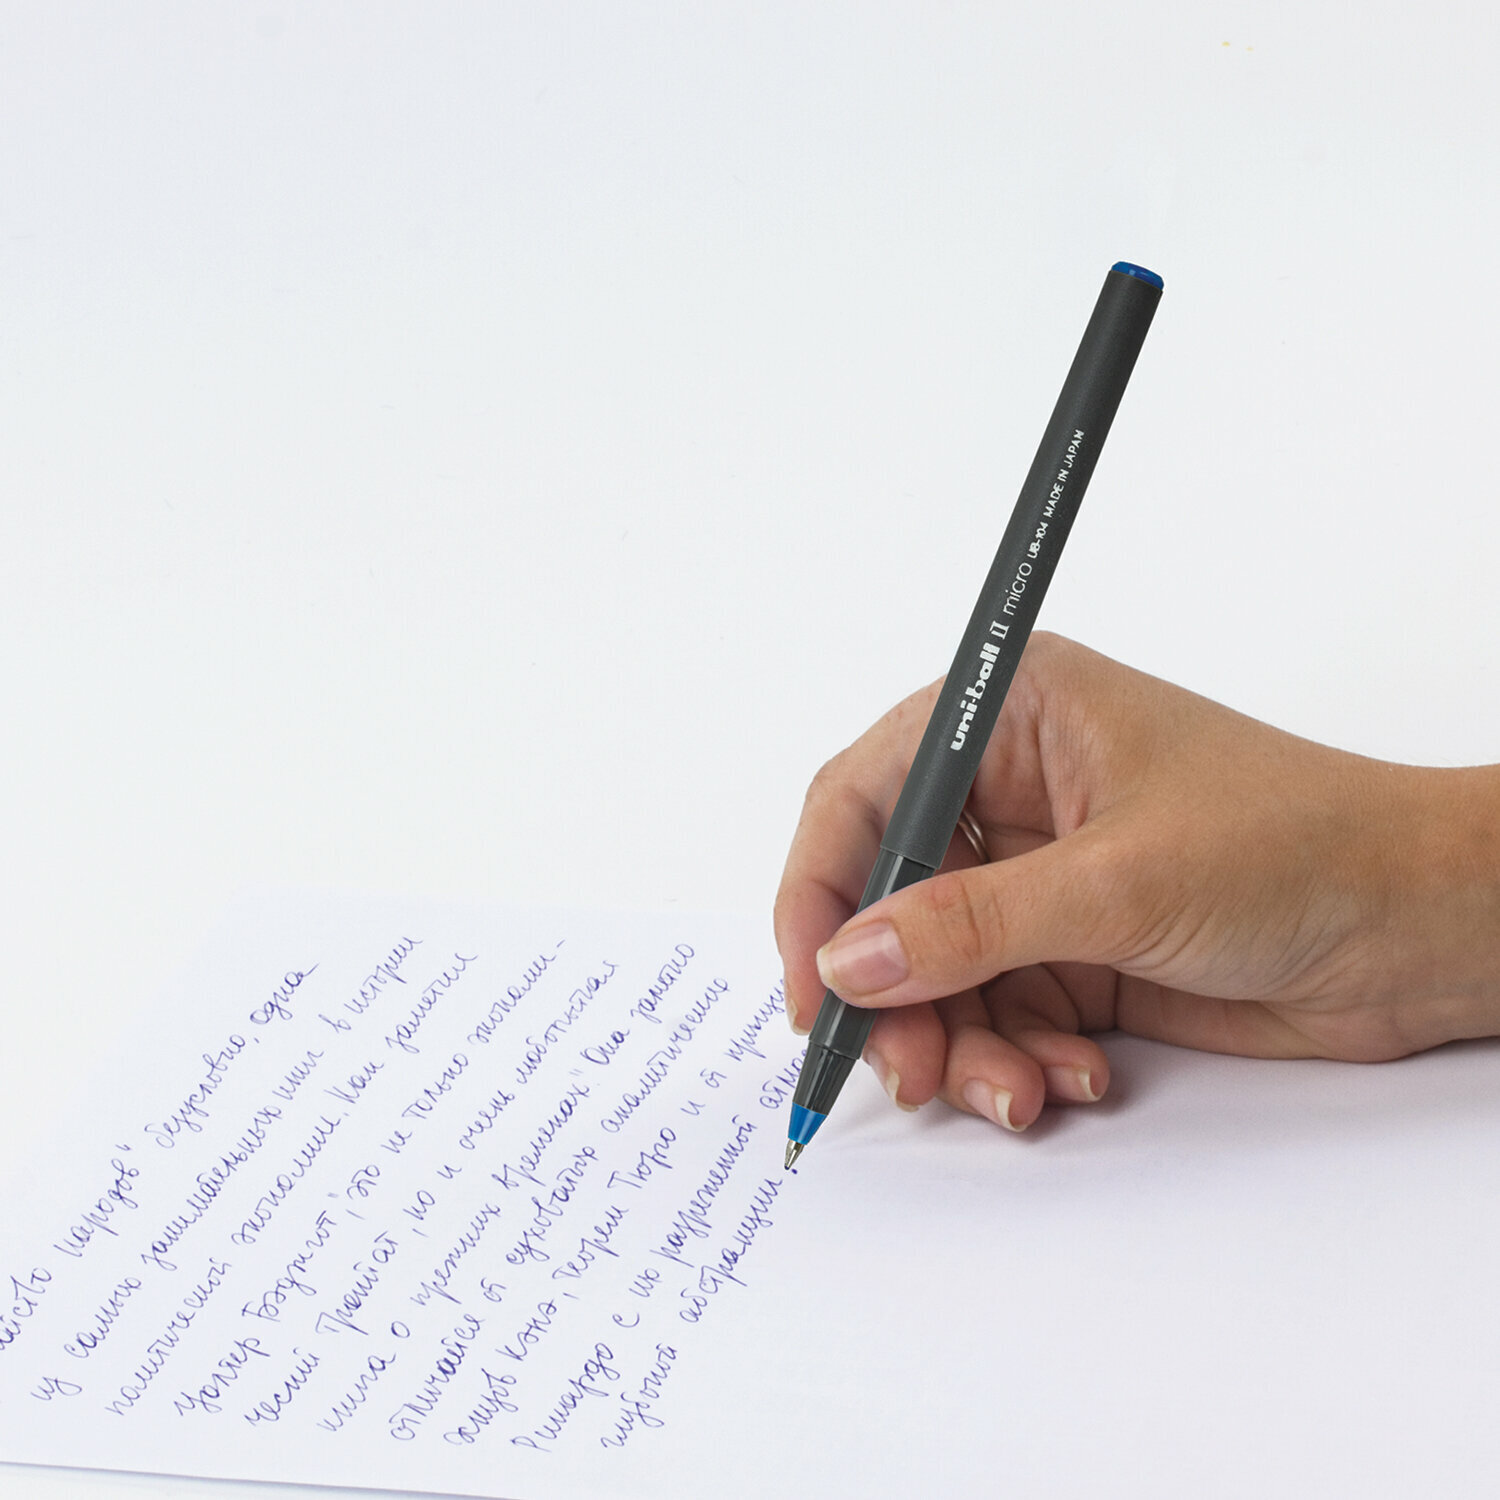 uni-ball II micro UB-104 MADE IN JAPAN
народов" безусловно, одна
из самых занимательных книг в истории
политической экономии. Как заметил
Уолтер Бэджгот, "это не только экономи-
ческий трактат, но и очень любопытная
книга о прежних временах." Она заметно
отличается от суховатых аналитических
Кэнэ, Тюрго и от
Рикардо с их разреженной
глубокой абстракции.